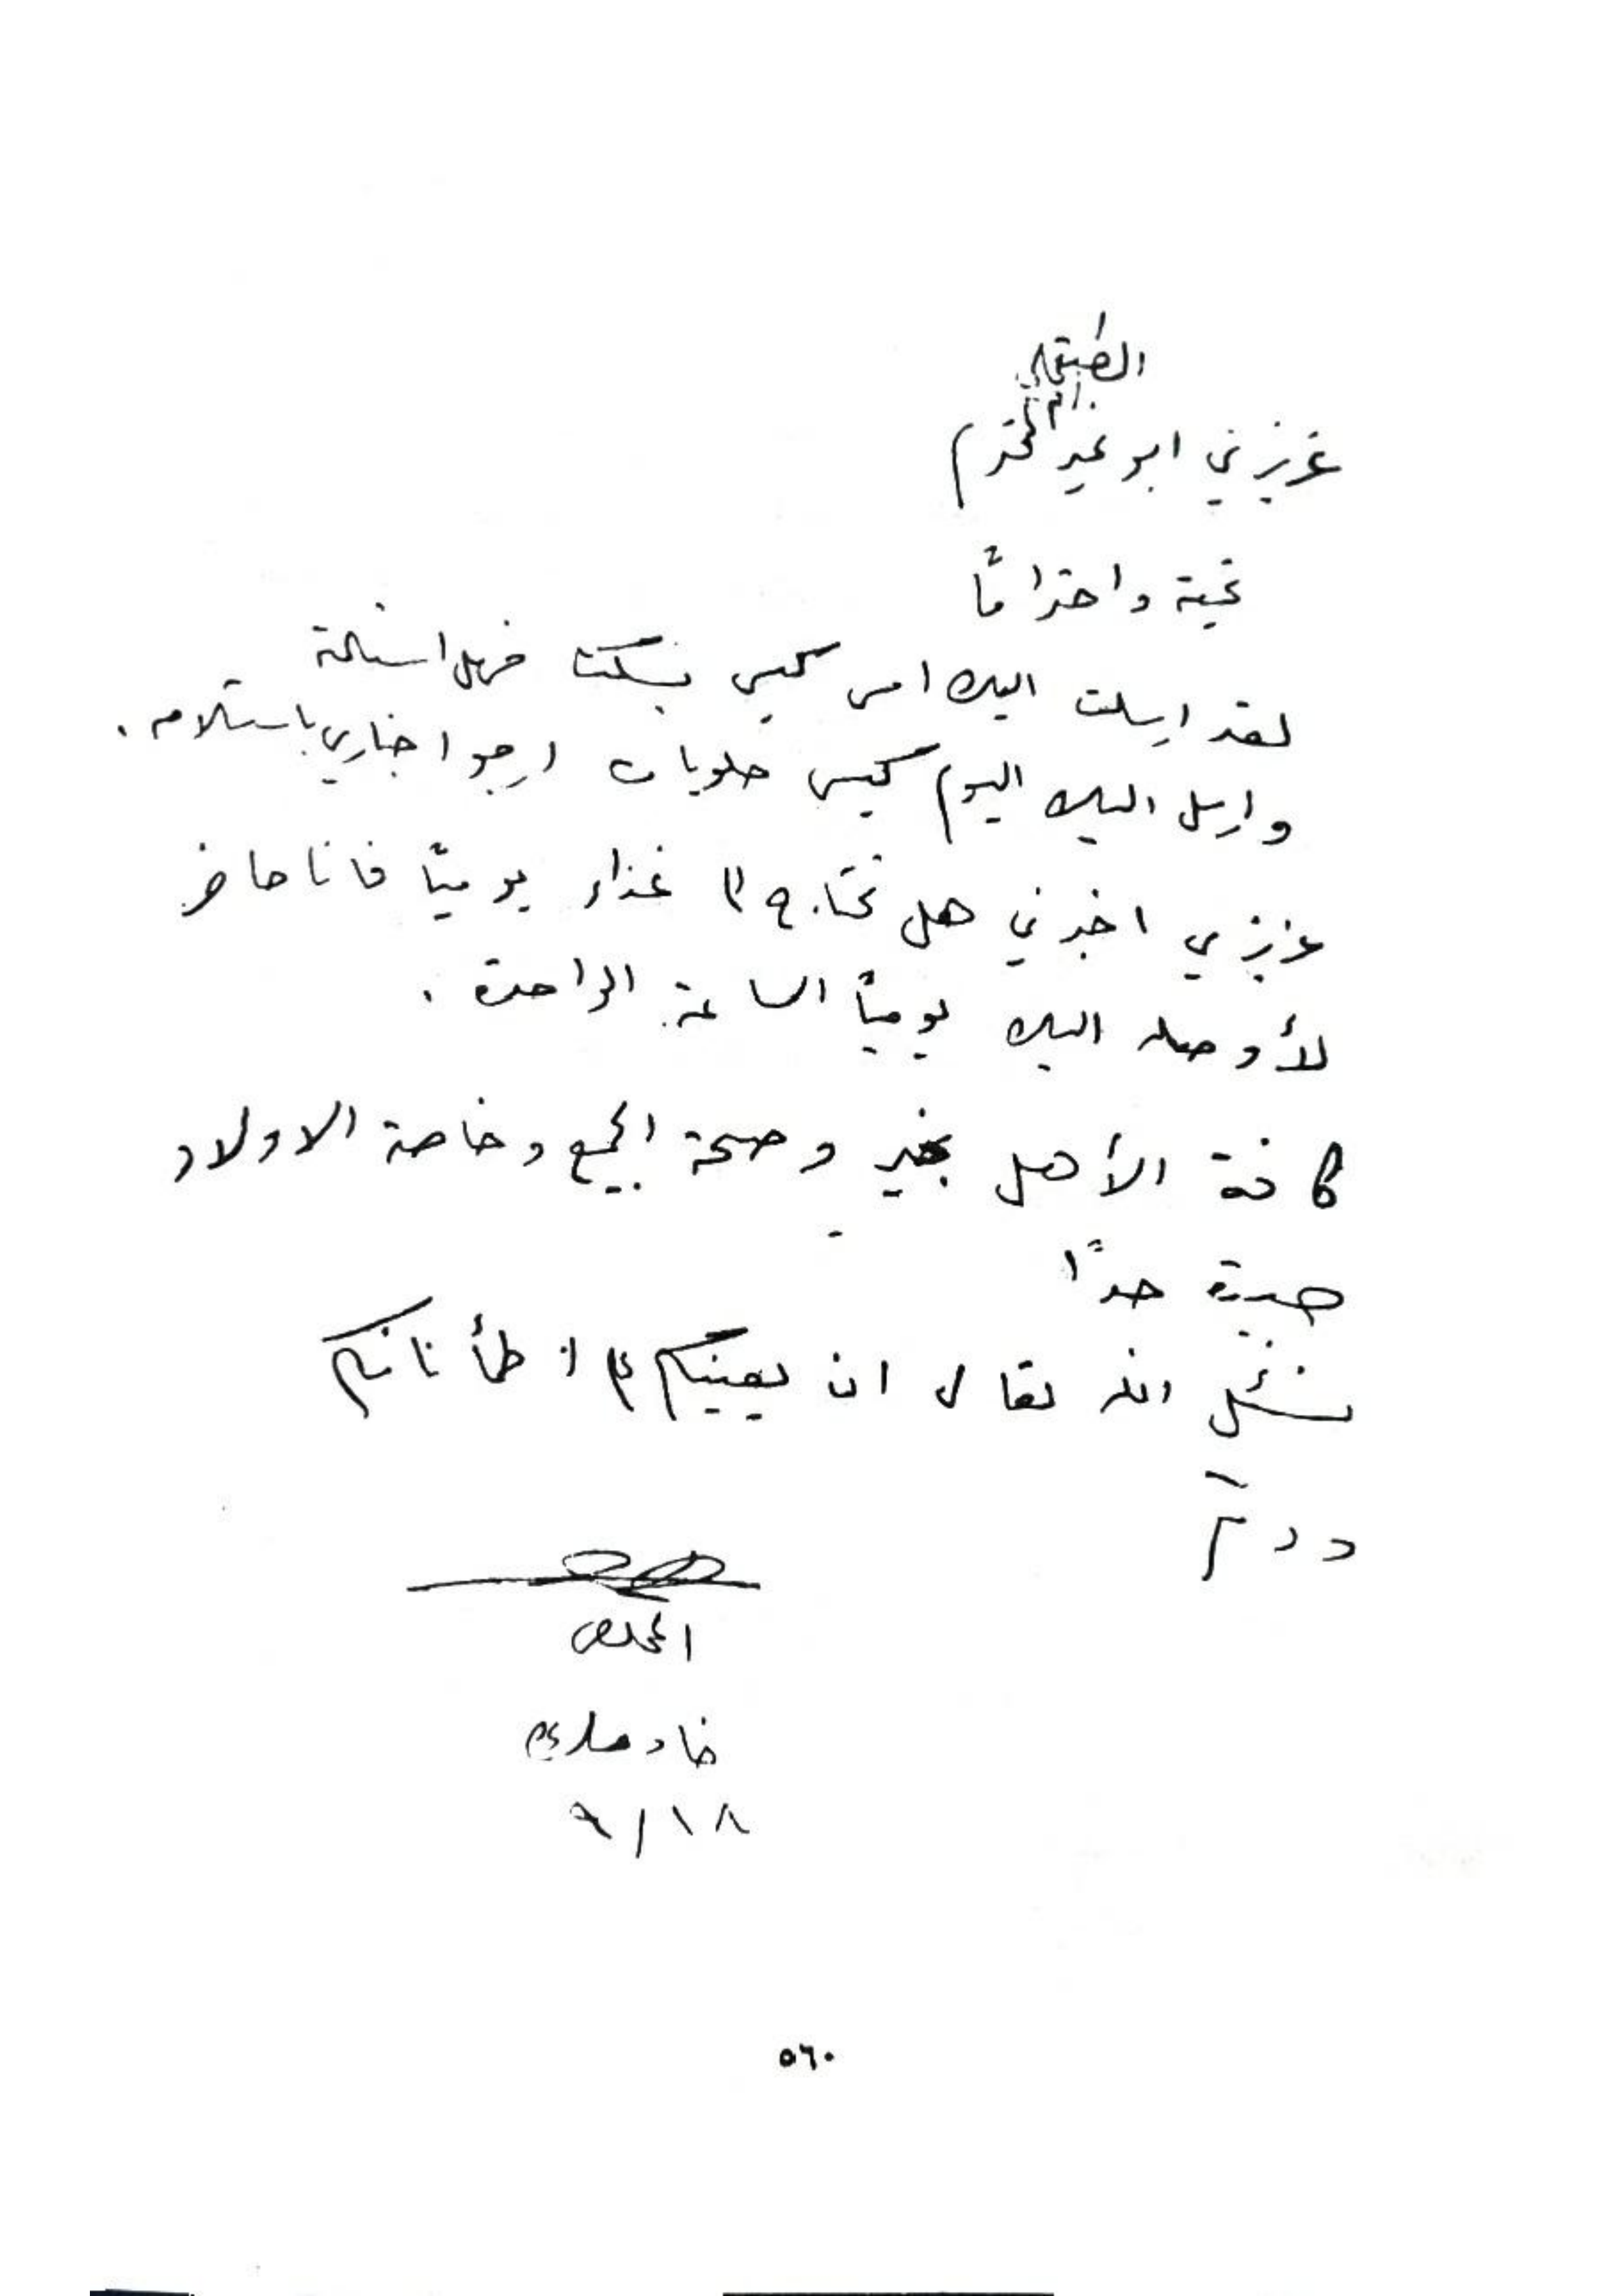 الطبقجلي
عزيزي ابو المحترم
تحية واحتراماً
لقد ارسلت اليك امس كيس بسكت فهل استلمته
وارسل اليك اليوم كيس حلويات ارجو اخباري باستلامه .
عزيزي اخبرني هل تحتاج الى غذاء يومياً فانا حاضر
لأوصله اليك يومياً الساعة الواحدة .
كافة الأهل بخير وصحة الجميع وخاصة الاولاد
جيدة جداً
نسئل الله تعالى ان يعينكم
المخلص
١٨/٩
٥٦٠